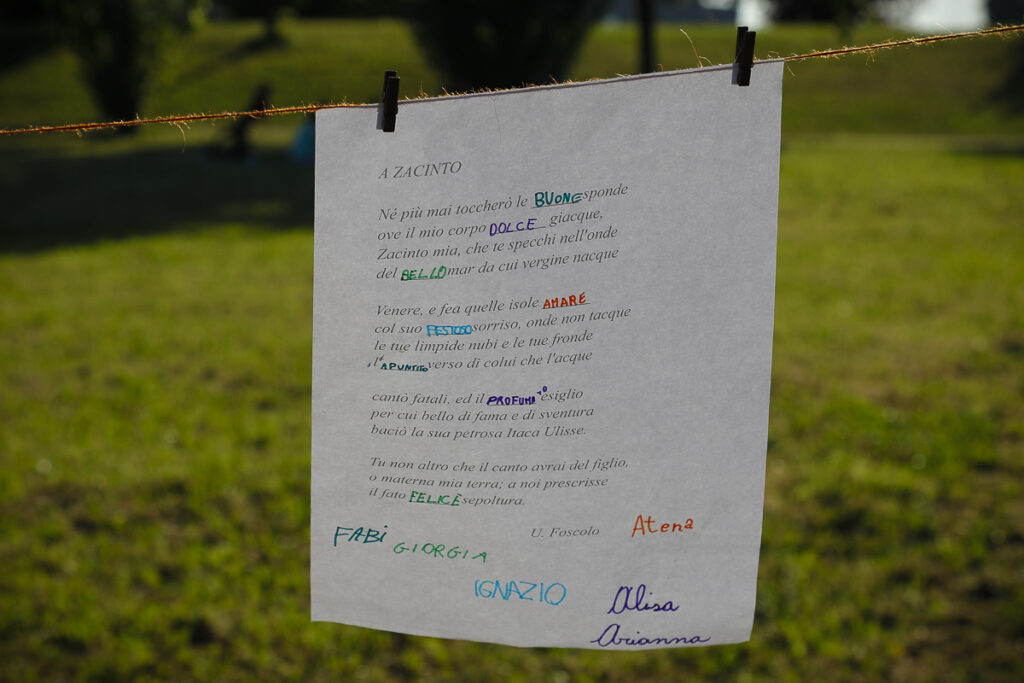 A ZACINTO
Né più mai toccherò le BUONE sponde
ove il mio corpo DOLCE giacque,
Zacinto mia, che te specchi nell'onde
del BELLO mar da cui vergine nacque
Venere, e fea quelle isole AMARE
col suo FESTOSO sorriso, onde non tacque
le tue limpide nubi e le tue fronde
l'APUNTITO verso di colui che l'acque
cantò fatali, ed il PROFUMATO esiglio
per cui bello di fama e di sventura
baciò la sua petrosa Itaca Ulisse.
Tu non altro che il canto avrai del figlio,
o materna mia terra; a noi prescrisse
il fato FELICE sepoltura.
U. Foscolo Atena
FABi GIORGIA
IGNAZIO
Alisa
Arianna